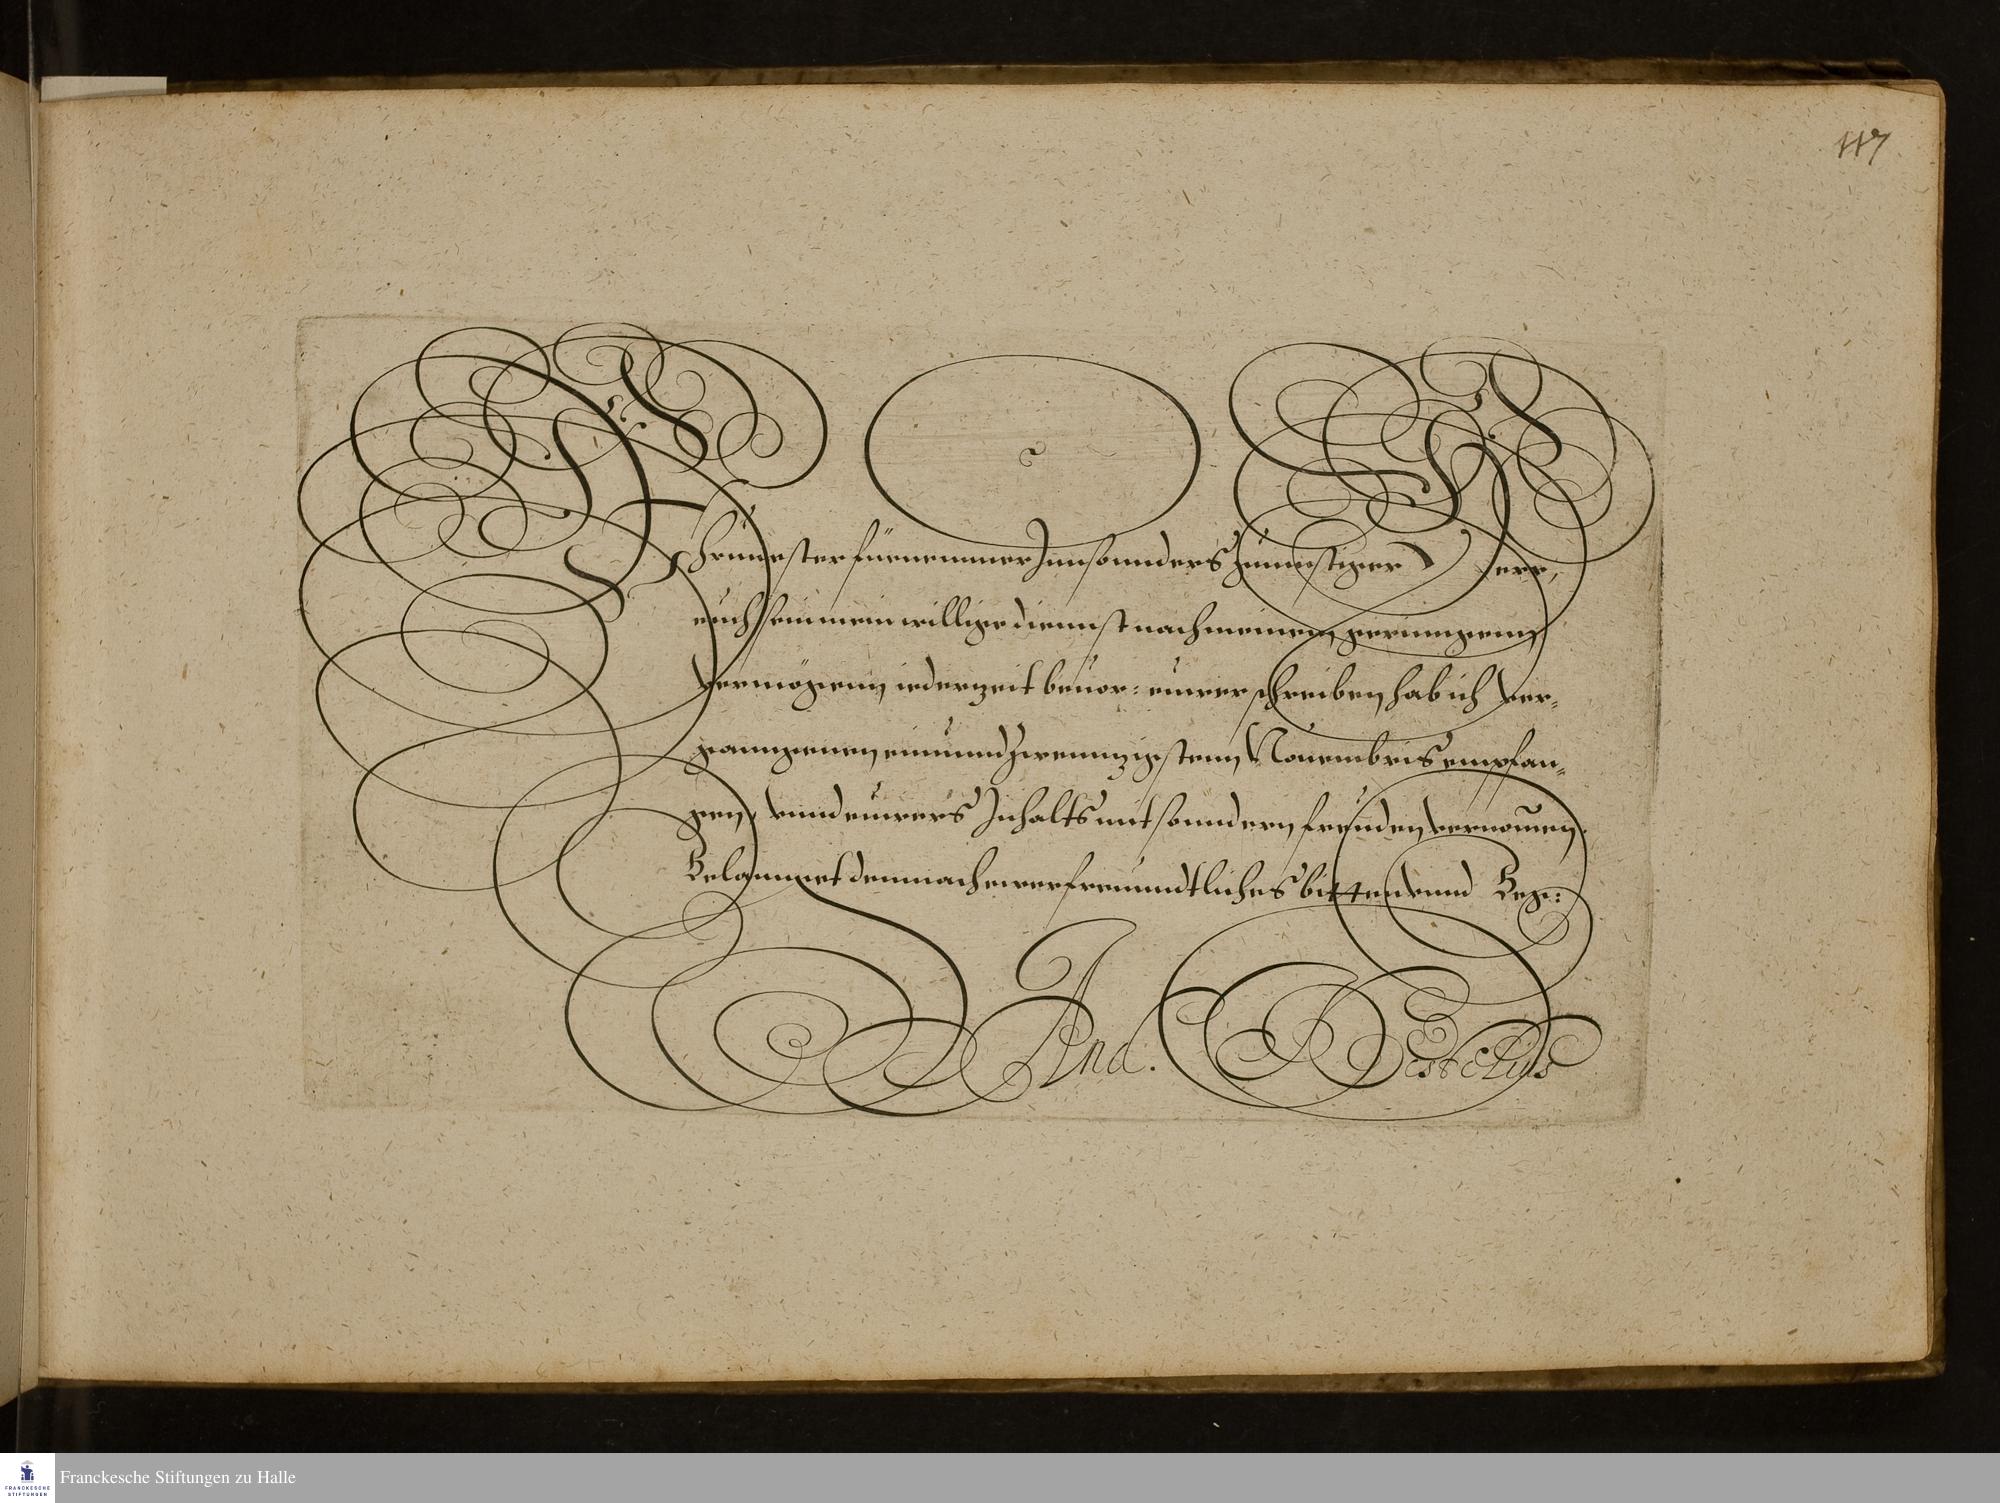 117
Ehrnuester fürnemmer Innsonnders günnstiger Herr,
euch sein mein willige diennst nach meinem geringenn
vermögenn iederzeit beuor: eurer schreiben hab ich ver-
ganngenen einunndzwenntzigstenn Nouembris empfan-
gen, vnnd Inhalts mit sonndern freuden vernomen.
Belannget demnach ewer freunndtliches bitten vnnd Beg:
And.
Franckesche Stiftungen zu Halle
FRANCKESCHE
STIFTUNGEN